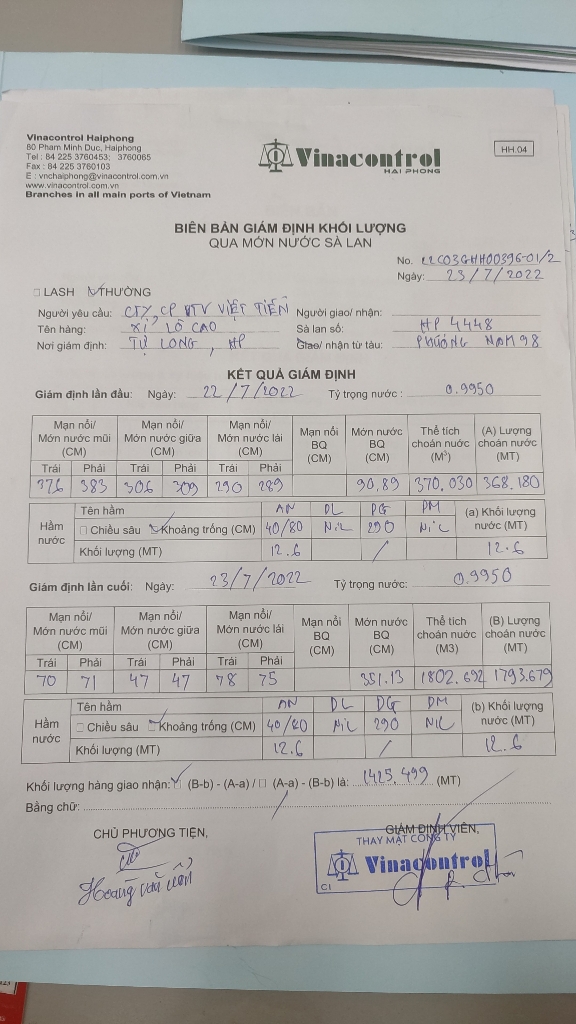 Vinacontrol Haiphong
80 Pham Minh Duc, Haiphong
Tel : 84 225 3760453; 3760065
Fax : 84 225 3760103
E : vnchaiphong@vinacontrol.com.vn
www.vinacontrol.com.vn
Branches in all main ports of Vietnam
Vinacontrol
HAI PHONG
HH.04
BIÊN BẢN GIÁM ĐỊNH KHỐI LƯỢNG
QUA MỚN NƯỚC SÀ LAN
No. 22C03GHH00396-01/2
Ngày: 23/7/2022
LASH THƯỜNG
Người yêu cầu: CTY CP DTV VIỆT TIẾN Người giao/ nhận:
Tên hàng: XỈ LÒ CAO Sà lan số: HP 4448
Nơi giám định: TỰ LONG, HP Giao/ nhận từ tàu: PHƯƠNG NAM 98
KẾT QUẢ GIÁM ĐỊNH
Giám định lần đầu: Ngày: 22/7/2022 Tỷ trọng nước : 0.9950
Mạn nổi/ Mớn nước mũi (CM) Mạn nổi/ Mớn nước giữa (CM) Mạn nổi/ Mớn nước lái (CM) Mạn nổi BQ (CM) Mớn nước BQ (CM) Thể tích choán nước (M³) (A) Lượng choán nước (MT)
Trái Phải Trái Phải Trái Phải
376 383 306 309 290 289 90,89 370.030 368.180
Hầm nước Tên hầm AN DL DG DM (a) Khối lượng nước (MT)
Chiều sâu Khoảng trống (CM) 40/80 NiL 290 NiL
Khối lượng (MT) 12.6 / 12.6
Giám định lần cuối: Ngày: 23/7/2022 Tỷ trọng nước: 0.9950
Mạn nổi/ Mớn nước mũi (CM) Mạn nổi/ Mớn nước giữa (CM) Mạn nổi/ Mớn nước lái (CM) Mạn nổi BQ (CM) Mớn nước BQ (CM) Thể tích choán nước (M3) (B) Lượng choán nước (MT)
Trái Phải Trái Phải Trái Phải
70 71 47 47 78 75 351.13 1802.692 1793.679
Hầm nước Tên hầm AN DL DG DM (b) Khối lượng nước (MT)
Chiều sâu Khoảng trống (CM) 40/80 NiL 290 NIL
Khối lượng (MT) 12.6 / 12.6
Khối lượng hàng giao nhận: (B-b) - (A-a) / (A-a) - (B-b) là: 1425.499 (MT)
Bằng chữ:
CHỦ PHƯƠNG TIỆN, GIÁM ĐỊNH VIÊN,
THAY MẶT CÔNG TY
Vinacontrol
C1
Hoàng văn